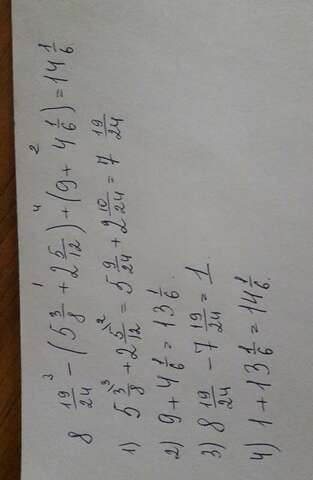 8 19/24 - (5 3/8 + 2 5/12) + (9 + 4 1/6) = 14 1/6.
1) 5 3/8 + 2 5/12 = 5 9/24 + 2 10/24 = 7 19/24
2) 9 + 4 1/6 = 13 1/6.
3) 8 19/24 - 7 19/24 = 1.
4) 1 + 13 1/6 = 14 1/6.